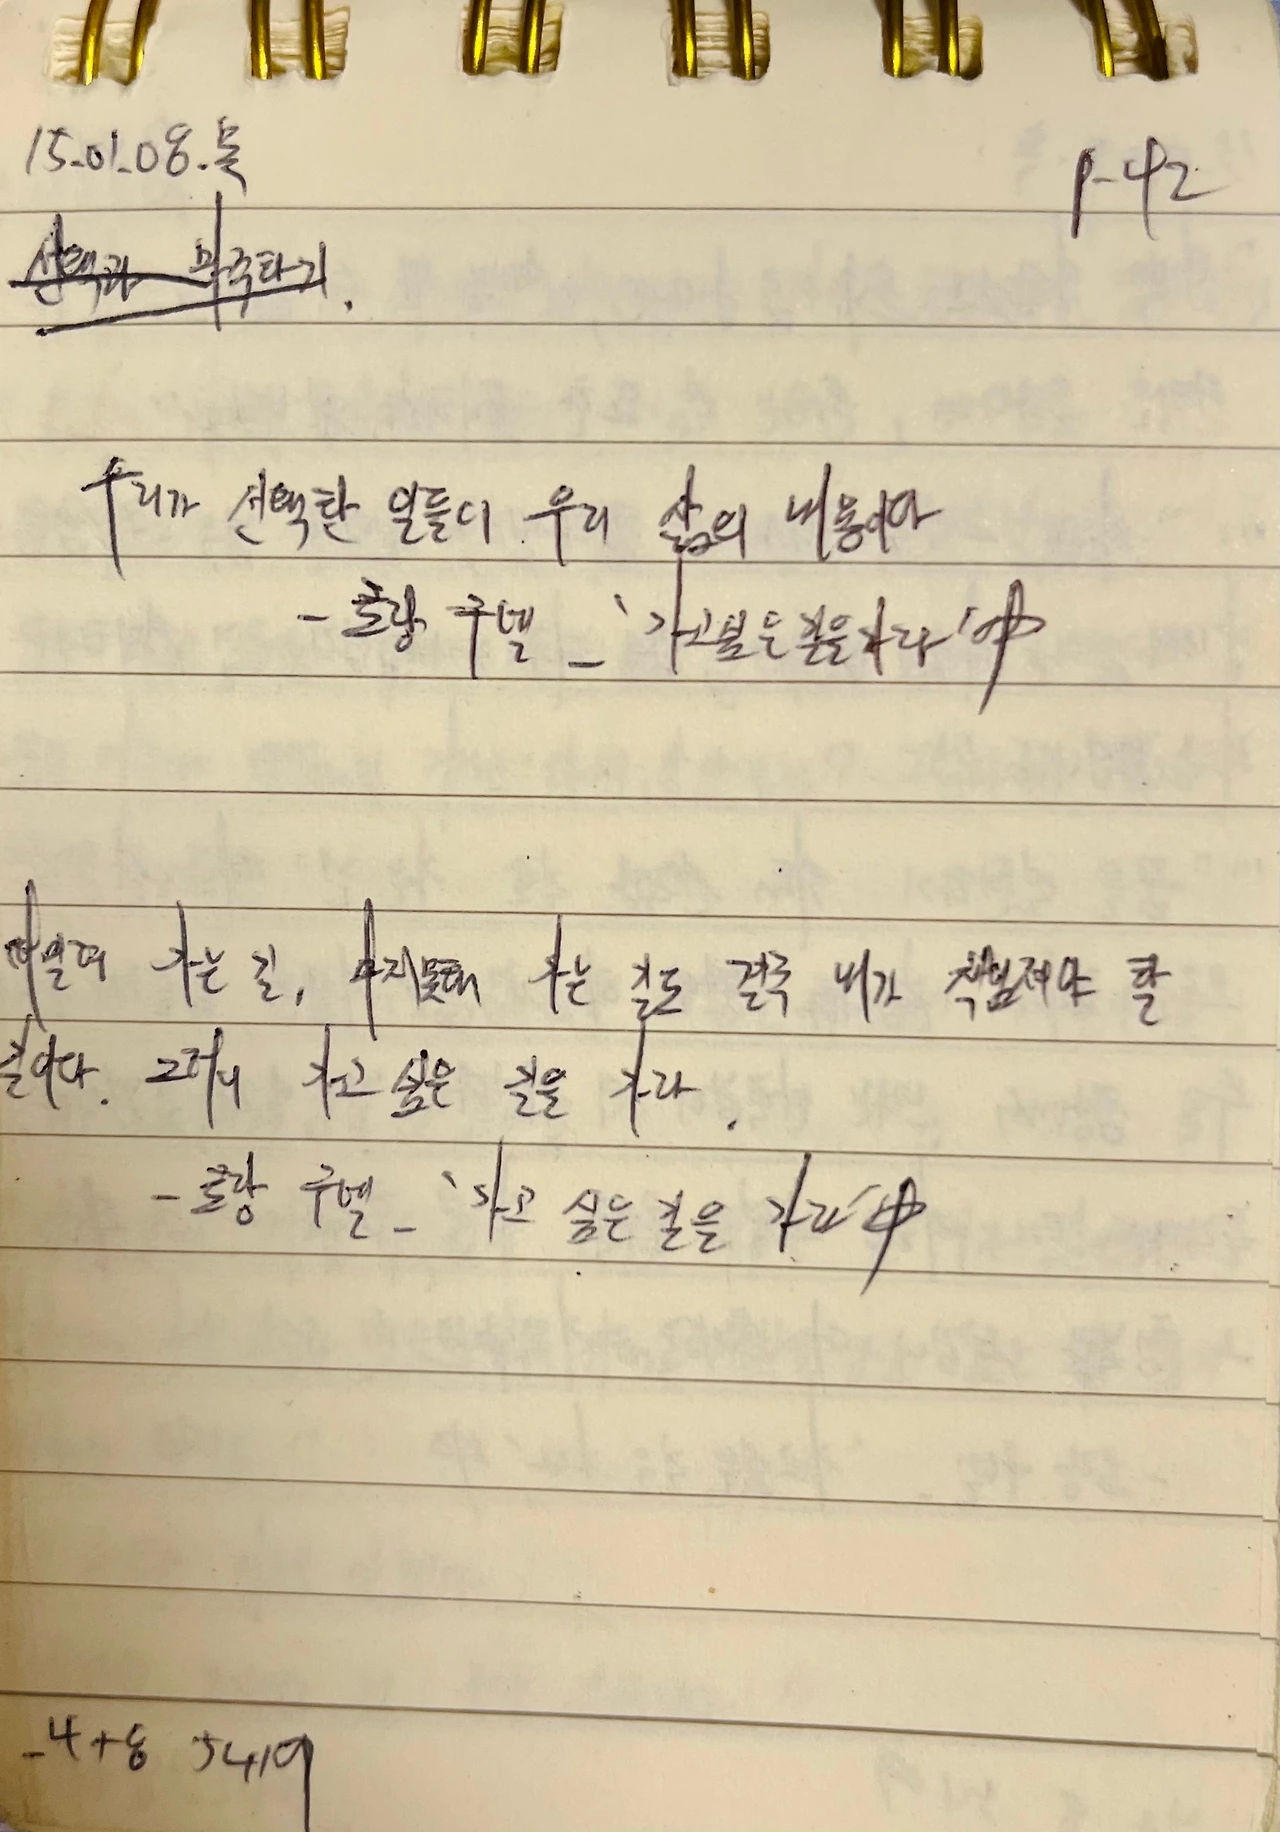 15.01.08.목
p-42
선택과 마주하기.
우리가 선택한 일들이 우리 삶의 내용이다
- 로랑 구넬 _ '가고싶은길을가라' 中
떠밀려 가는 길, 마지못해 가는 길도 결국 내가 책임져야 할
길이다. 그러니 가고 싶은 길을 가라.
- 로랑 구넬 _ '가고 싶은 길을 가라' 中
-4+8